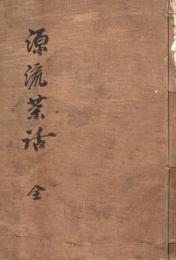 源流茶話 全